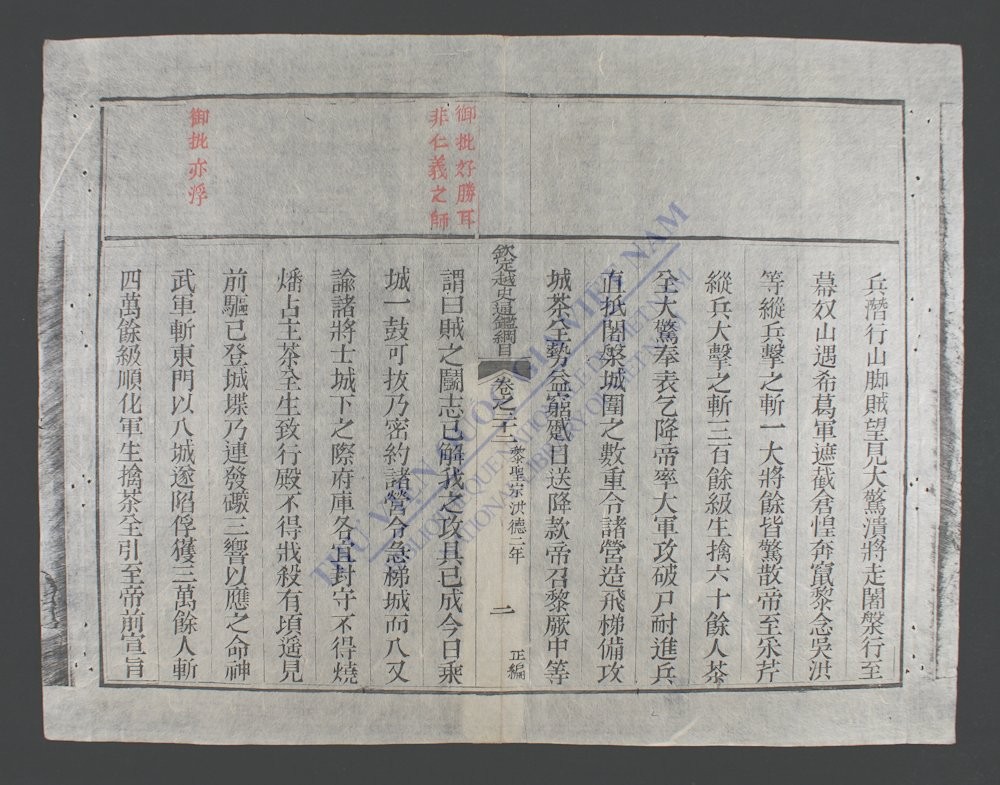 御批好勝耳
非仁義之師
兵潛行山脚賊望見大驚潰將走闍槃行至
幕奴山遇希葛軍遮截倉惶奔竄黎念吳洪
等縱兵擊之斬一大將餘皆驚散帝至釆芹
縱兵大擊之斬三百餘級生擒六十餘人茶
全大驚奉表乞降帝率大軍攻破尸耐進兵
直抵闍槃城圍之數重令諸營造飛梯備攻
城茶全勢益窮蹙日送降款帝召黎厥中等
欽定越史通鑑綱目 卷之二十二 黎聖宗洪德二年 二 正編
御批亦浮
謂曰賊之鬭志已解我之攻具已成今日乘
城一鼓可拔乃密約諸營令急梯城而入又
諭諸將士城下之際府庫各宜封守不得燒
燔占主茶全生致行殿不得戕殺有頃遥見
前驅已登城堞乃連發礮三響以應之命神
武軍斬東門以入城遂陷俘獲三萬餘人斬
四萬餘級順化軍生擒茶全引至帝前宣旨
THƯ VIỆN QUỐC GIA VIỆT NAM
BIBLIOTHÈQUE NATIONALE DU VIETNAM
NATIONAL LIBRARY OF VIETNAM